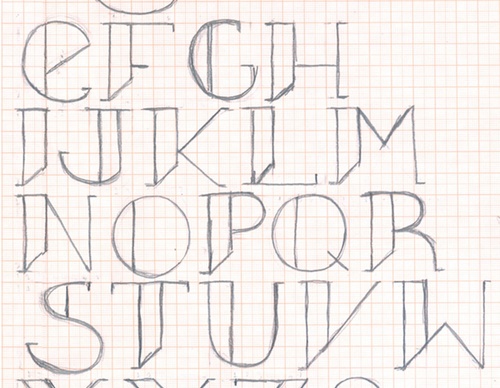 e F G H
I J K L M
N O P Q R
S T U V W